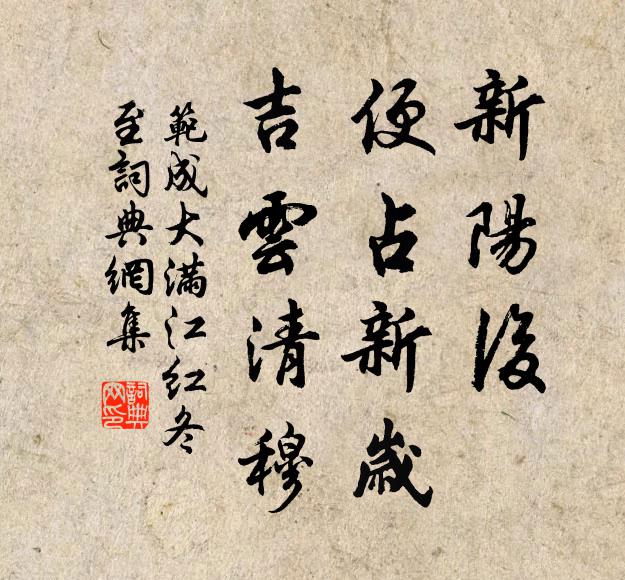 新陽後
便占新歲
吉雲清穆
範成大滿江紅冬
至詞典網集
詞典
网印